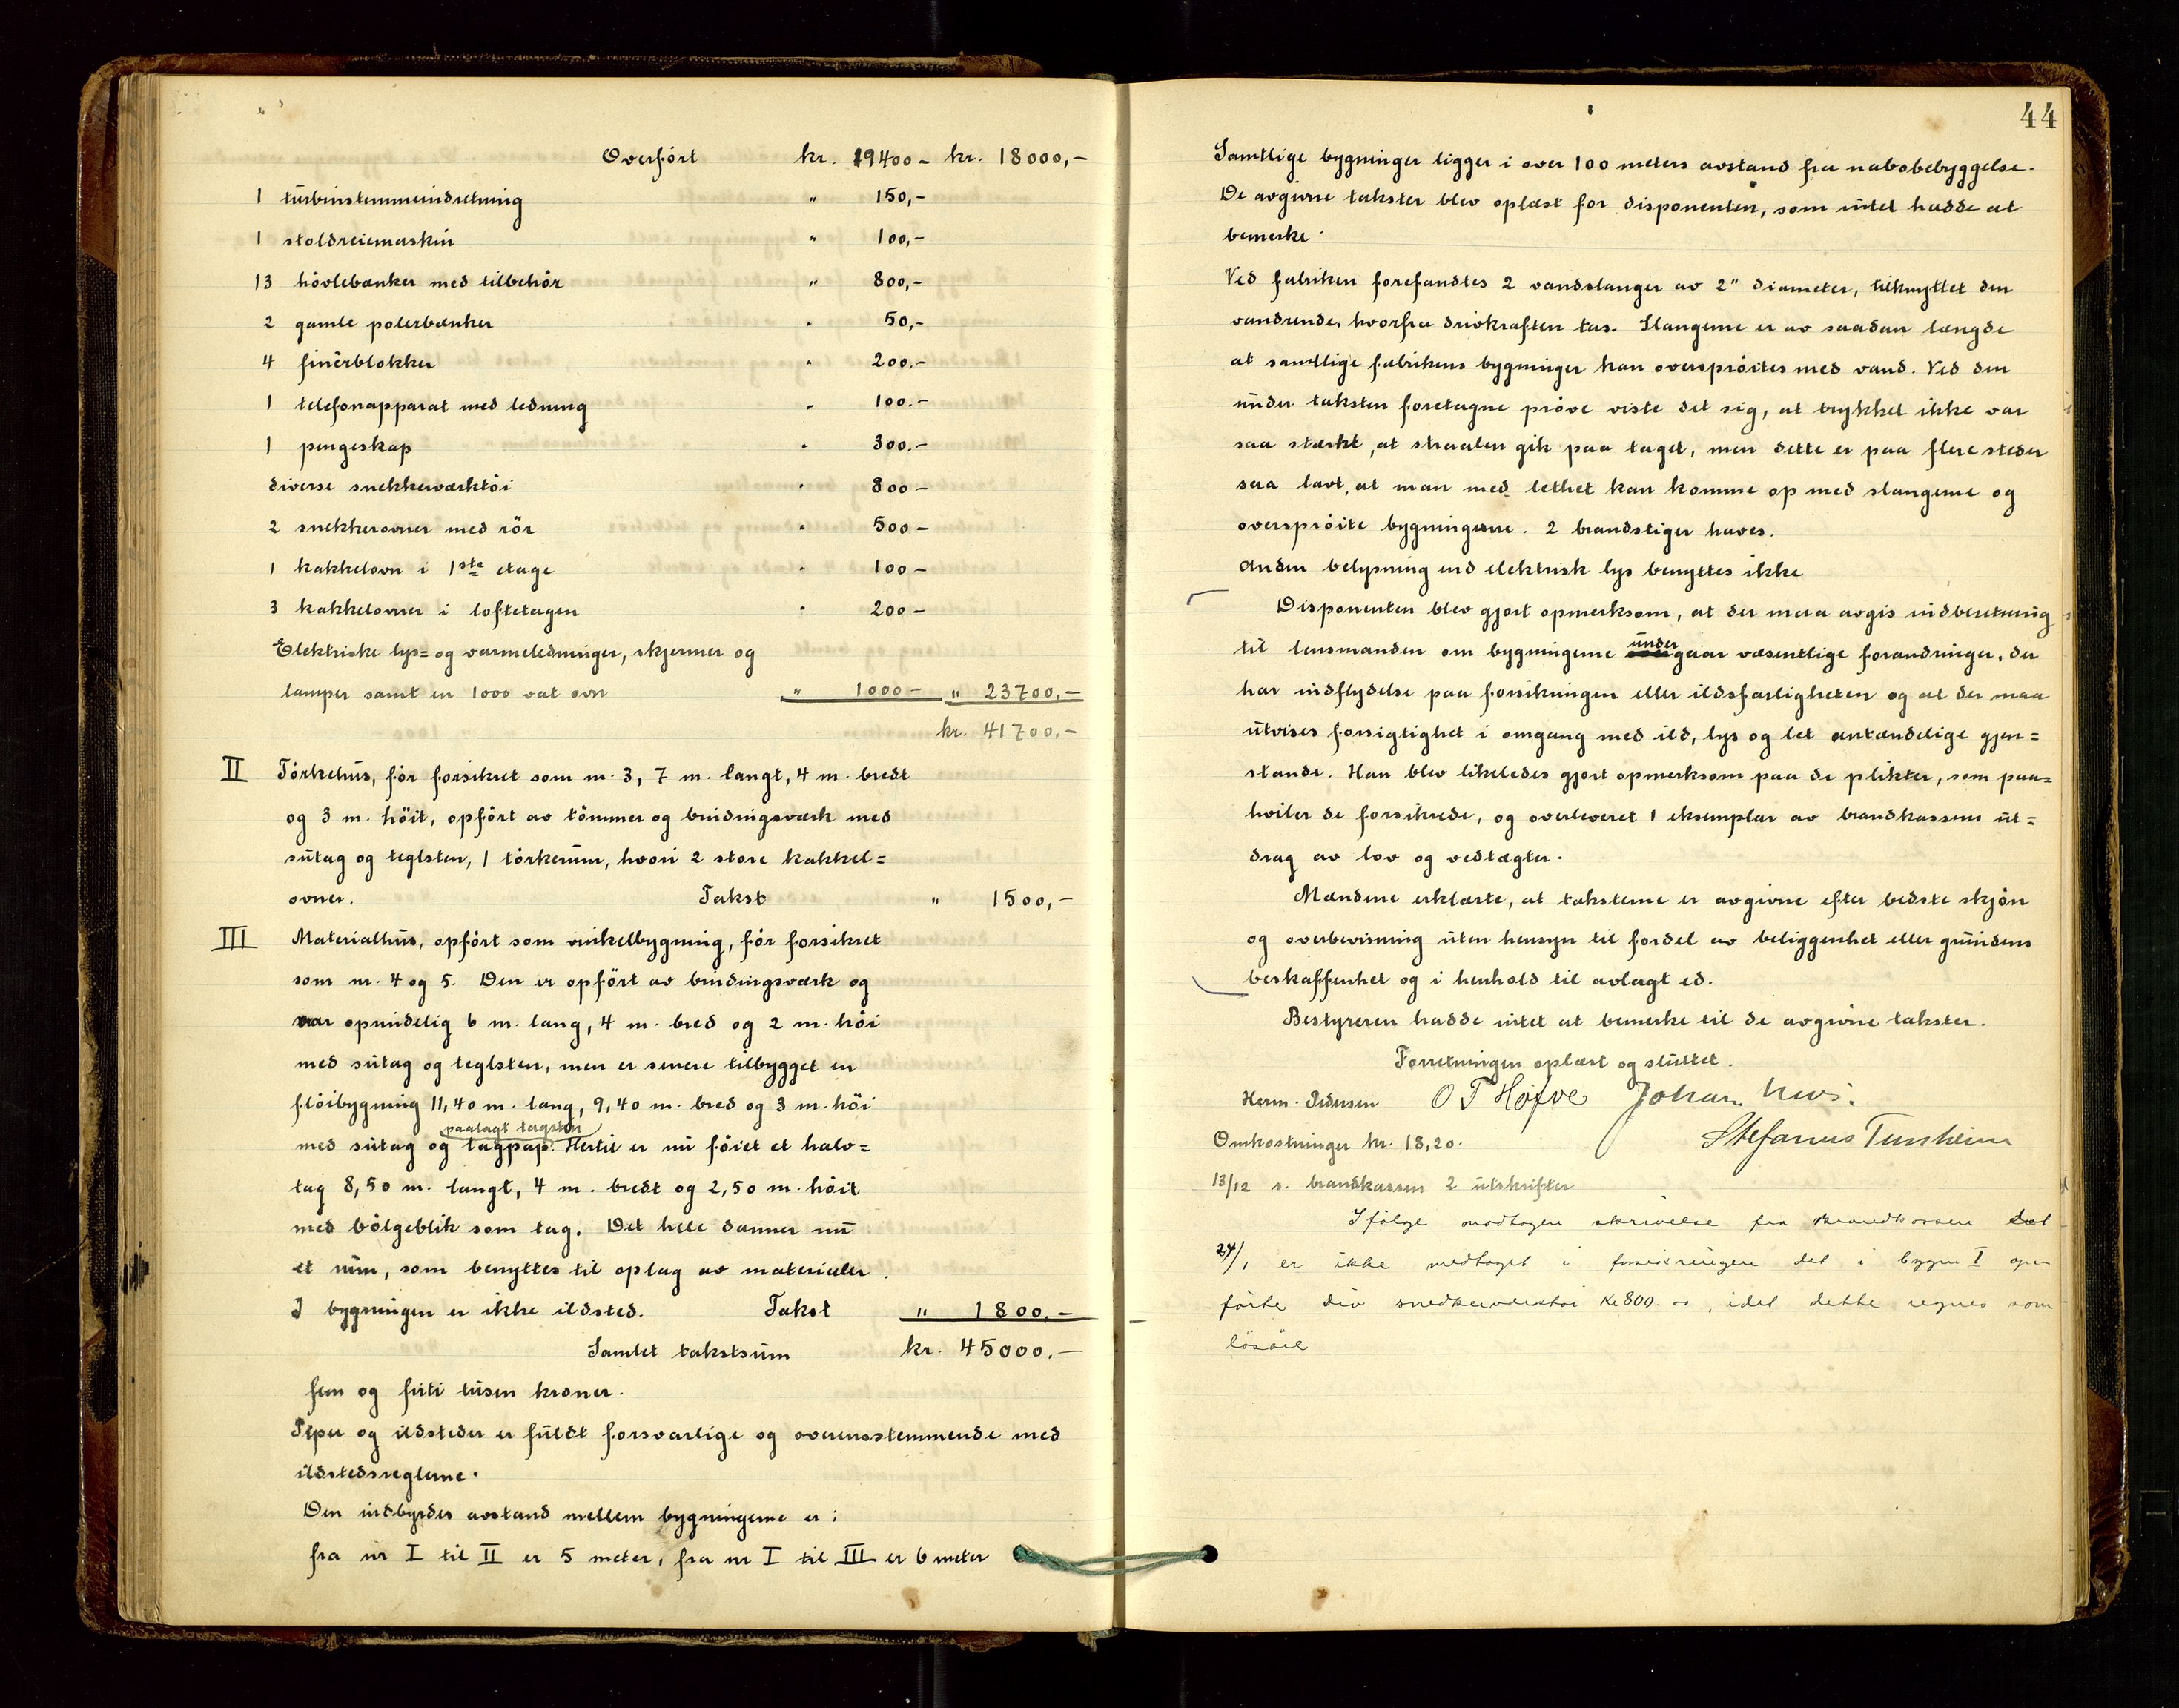 Overført kr. 19400- kr. 18000,-
1 turbinstemmeindretning " 150,-
1 stoldreiemaskin " 100,-
13 høvlebænker med tilbehør " 800,-
2 gamle polerbænker " 50,-
4 finérblokker " 200,-
1 telefonapparat med ledning " 100.-
1 pengeskap " 300.-
diverse snekkerværktøi " 800-
2 snekkerovner med rør " 500-
1 kakkelovn i 1ste etage " 100-
3 kakkelovner i loftetagen " 200-
Elektriske lys= og varmeledninger, skjermer og
lamper samt en 1000 vat ovn " 1000- " 23700,-
kr. 41700,-
II Tørkehus, før forsikret som nr. 3, 7 m. langt, 4 m. bredt
og 3 m. høit, opført av tømmer og bindingsværk med
sutag og teglsten, 1 tørkerum, hvori 2 store kakkel=
ovner. Takst " 1500,-
III Materialhus, opført som vinkelbygning, før forsikret
som nr. 4 og 5. Den er opført av bindingsværk og
var oprindelig 6 m. lang, 4 m. bred og 2 m. høi
med sutag og teglsten, men er senere tilbygget en
fløibygning 11,40 m. lang, 9,40 m. bred og 3 m. høi
paalagt tagsten
med sutag og tagpap. Hertil er nu føiet et halv=
tag 8,50 m. langt, 4 m. bredt og 2,50 m. høit
med bølgeblik som tag. Det hele danner nu
et rum, som benyttes til oplag av materialer.
I bygningen er ikke ildsted. Takst " 1800,-
Samlet takstsum kr. 45000.-
fem og firti tusen kroner.
Piper og ildsteder er fuldt forsvarlige og overensstemmende med
ildstedsreglerne.
Den indbyrdes avstand mellem bygningerne er:
fra nr I til II er 5 meter, fra nr I til III er 6 meter
44
Samtlige bygninger ligger i over 100 meters avstand fra nabobebyggelse.
De avgivne takster blev oplæst for disponenten, som intet hadde at
bemerke.
Ved fabriken forefandtes 2 vandslanger av 2" diameter, tilknyttet den
vandrende, hvorfra drivkraften tas. Slangerne er av saadan længde
at samtlige fabrikens bygninger kan oversprøites med vand. Ved den
under taksten foretagne prøve viste det sig, at trykket ikke var
saa stærkt, at straalen gik paa taget, men dette er paa flere steder
saa lavt, at man med lethet kan komme op med slangerne og
oversprøite bygningerne. 2 brandstiger haves.
Anden belysning end elektrisk lys benyttes ikke
Disponenten blev gjort opmerksom, at der maa avgis indberetning
til lensmanden om bygningerne undergaar væsentlige forandringer, der
har indflydelse paa forsikringen eller ildsfarligheten og at der maa
utvises forsigtighet i omgang med ild, lys og let antændelige gjen=
stande. Han blev likeledes gjort opmerksom paa de plikter, som paa=
hviler de forsikrede, og overleveret 1 eksemplar av brandkassens ut=
drag av lov og vedtægter.
Mændene erklærte, at taksterne er avgivne efter bedste skjøn
og overbevisning uten hensyn til fordel av beliggenhet eller grundens
beskaffenhet og i henhold til avlagt ed.
Bestyreren hadde intet at bemerke til de avgivne takster.
Forretningen oplæst og sluttet.
Herm. Pedersen O T Høfve Johan
Omkostninger kr. 18,20. Stefanus Tunheim
13/12 s. brandkassen 2 utskrifter
Ifølge modtagen skrivelse fra Brandkassen dat
24/1 er ikke medtaget i forsikringen det i bygn I opp
førte div snedkerverktøi Kr 800.00, idet dette regnes som
løsøre